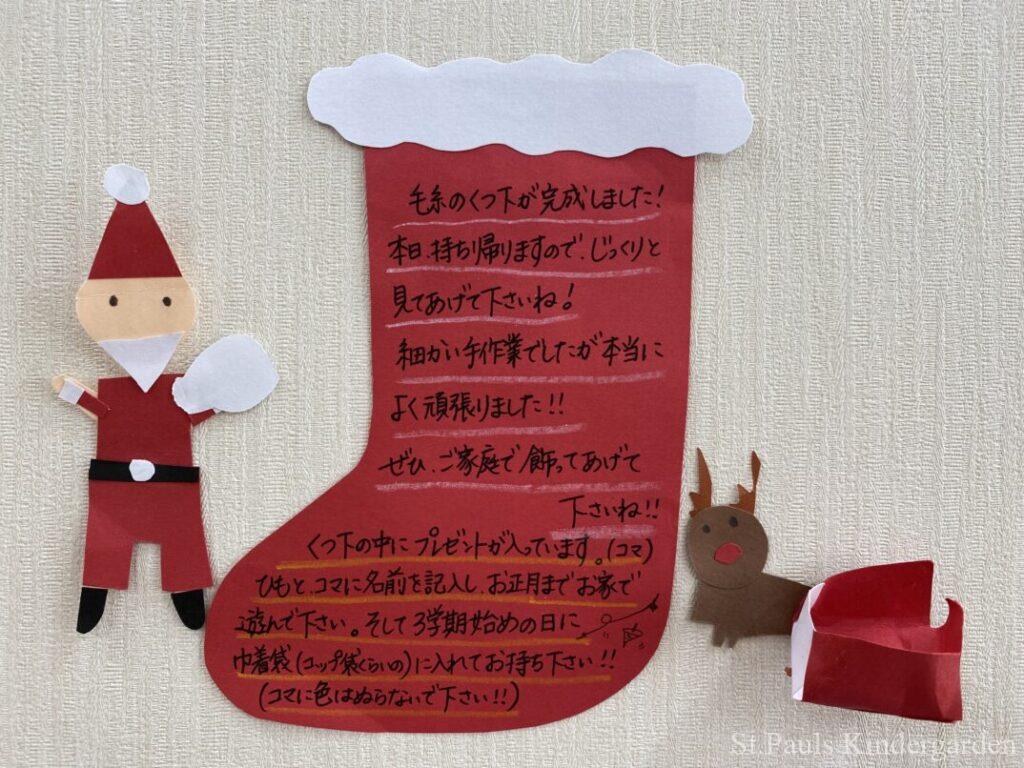 毛糸のくつ下が完成しました!
本日、持ち帰りますので、じっくりと
見てあげて下さいね!
細かい手作業でしたが本当に
よく頑張りました!!
ぜひ、ご家庭で飾ってあげて
下さいね!!
くつ下の中にプレゼントが入っています。(コマ)
ひもと、コマに名前を記入し、お正月までお家で
遊んで下さい。そして3学期始めの日に
巾着袋(コップ袋くらいの)に入れてお持ち下さい!!
(コマに色はぬらないで下さい!!)
St.Pauls Kindergarden